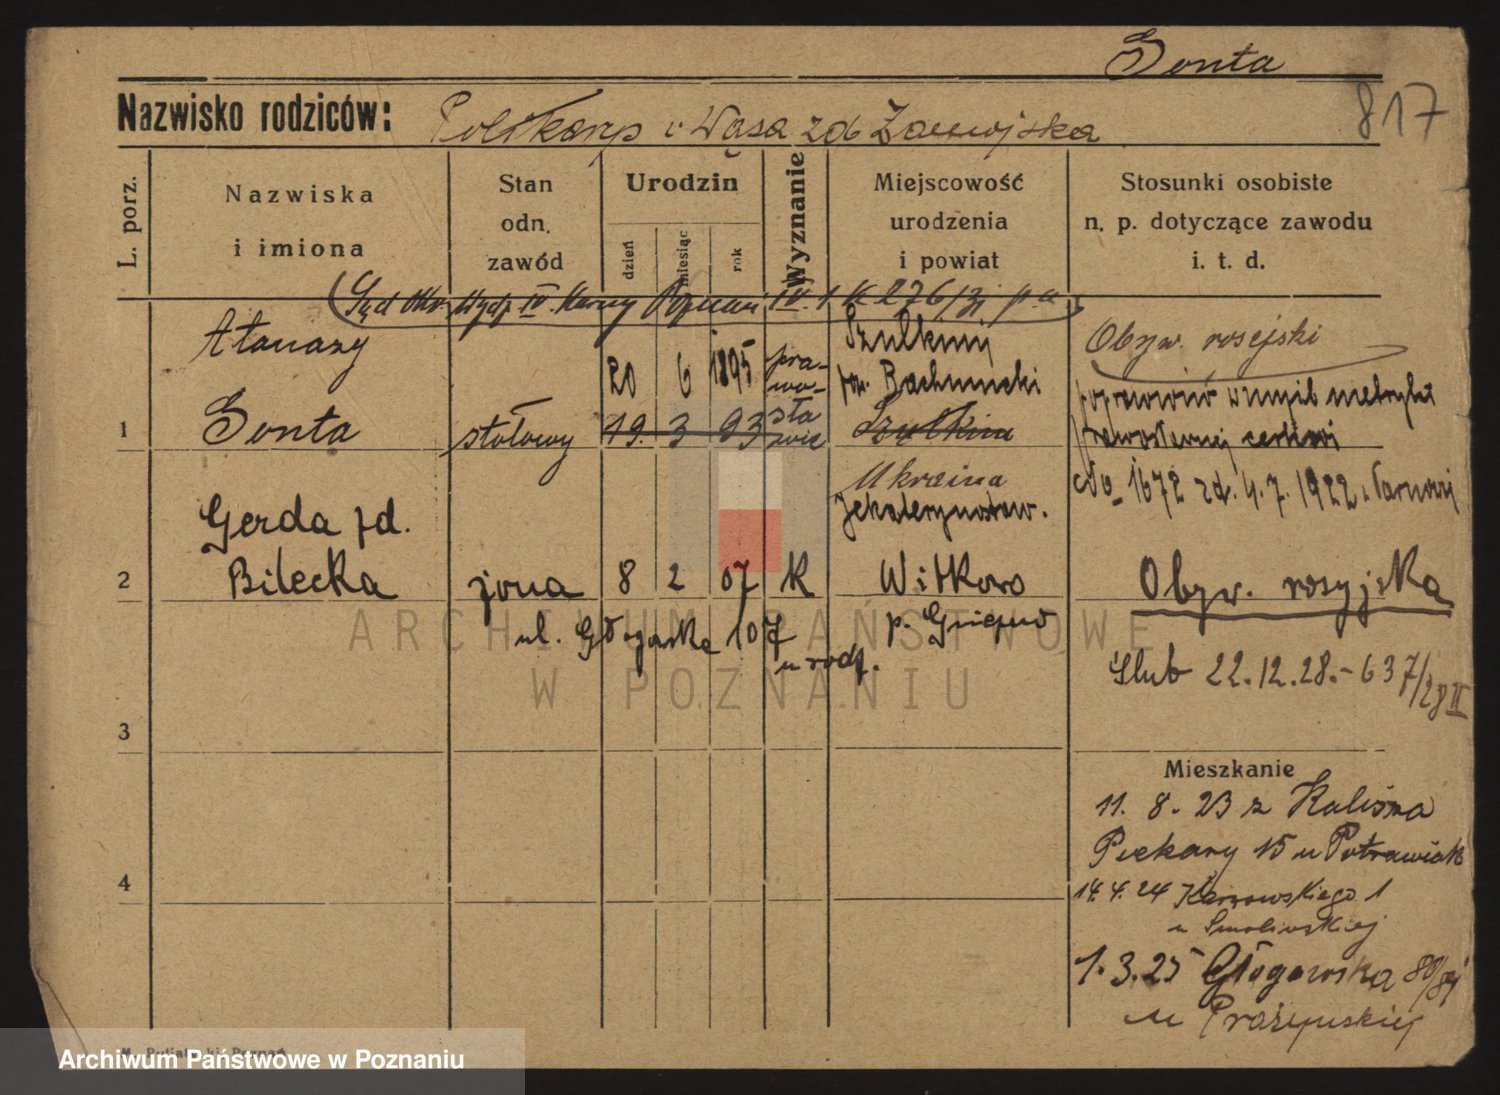 Gonta
817
Nazwisko rodziców: Polikarp i Wasa zd Zamojska
L. porz.
Nazwiska i imiona
Stan odn. zawód
Urodzin
dzień
miesiąc
rok
Wyznanie
Miejscowość urodzenia i powiat
Stosunki osobiste n. p. dotyczące zawodu i. t. d.
(Sąd Okr. Wydz IV. Karny Poznań IV. 1 K 276/31
1
Atanazy
Gonta
stołowy
20 6 1895
19. 3 93
prawosławie
pow. Bachmucki
Ukraina
Jekaterynosław.
Obyw. rosejski
metryki
No 1672 zd. 4.7.1922
2
Gerda zd.
Bilecka
żona
8 2 07
K
Witkowo
p. Gniezno
Obyw. rosyjska
ul. Głogowska 107
u rodz.
Ślub 22.12.28.- 637/28 II
3
Mieszkanie
11. 8. 23 z Kalisza
Piekary 15 u Potrawiak
4
14. 4. 24 1
u Smolińskiej
1. 3. 25 Głogowska
u
ARCHIWUM PAŃSTWOWE
W POZNANIU
Archiwum Państwowe w Poznaniu